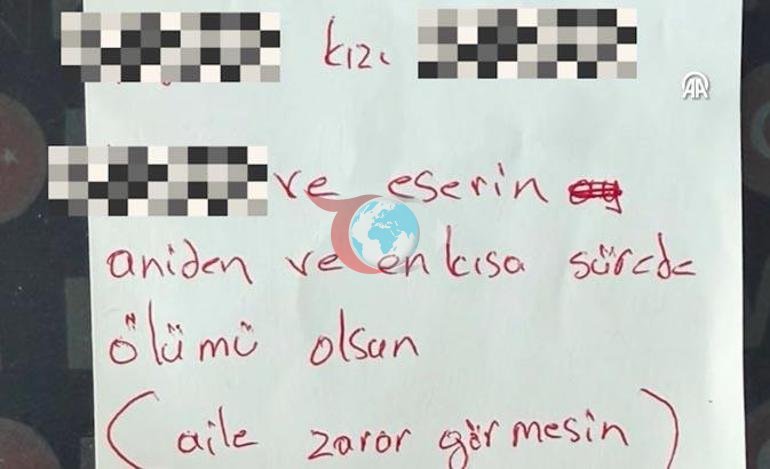 kızı
ve eserin
aniden ve en kısa sürede
ölümü olsun
(aile zarar görmesin)
AA